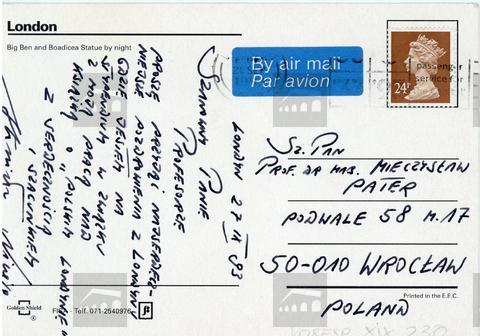 London
Big Ben and Boadicea Statue by night
By air mail
Par avion
passenger
service for
24P
LONDYN 27 IX 93
SZANOWNY PANIE
PROFESORZE
PROSZĘ PRZYJĄĆ NAJSERDECZ-
NIEJSZE POZDROWIENIA Z LONDYNU
GDZIE JESTEM NA
STYPENDIUM W ZWIĄZKU
Z MOJĄ PRACĄ NAD
KSIĄŻKĄ O "POLSKIM LONDYNIE"
Z SERDECZNOŚCIĄ
I SZACUNKIEM
SZ. PAN
PROF. DR HAB. MIECZYSŁAW
PATER
PODWALE 58 M. 17
50-010 WROCŁAW
POLAND
Printed in the E.E.C.
Golden Shield
Telf. 071-2540976
KORESP. XIX 230